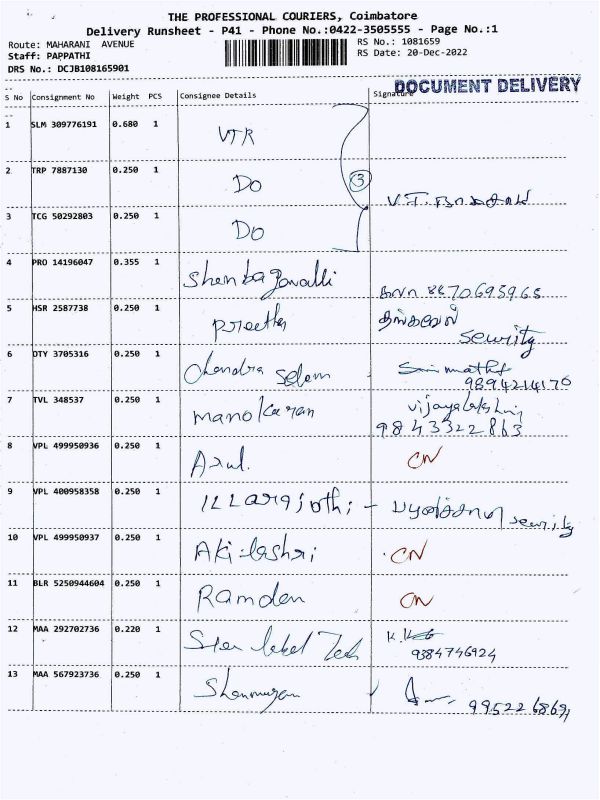 THE PROFESSIONAL COURIERS, Coimbatore
Delivery Runsheet - P41 - Phone No.:0422-3505555 - Page No.:1
Route: MAHARANI AVENUE
RS No.: 1081659
Staff: PAPPATHI
RS Date: 20-Dec-2022
DRS No.: DCJB108165901
DOCUMENT DELIVERY
S No Consignment No Weight PCS Consignee Details Signature
1 SLM 309776191 0.680 1 VTR
2 TRP 7887130 0.250 1 DO 3
3 TCG 50292803 0.250 1 DO
4 PRO 14196047 0.355 1 Shenbagavalli
8870695965
5 HSR 2587738 0.250 1 Preetha தங்கவேல்
security
6 DTY 3705316 0.250 1 Chandra Selem
9894214170
7 TVL 348537 0.250 1 Manokaran Vijayalakshmi
9843322863
8 VPL 499950936 0.250 1 Arul. CN
9 VPL 400958358 0.250 1 security
10 VPL 499950937 0.250 1 Akilashri CN
11 BLR 5250944604 0.250 1 Ramden CN
12 MAA 292702736 0.220 1 label Tech
9384746924
13 MAA 567923736 0.250 1 Shanmugam